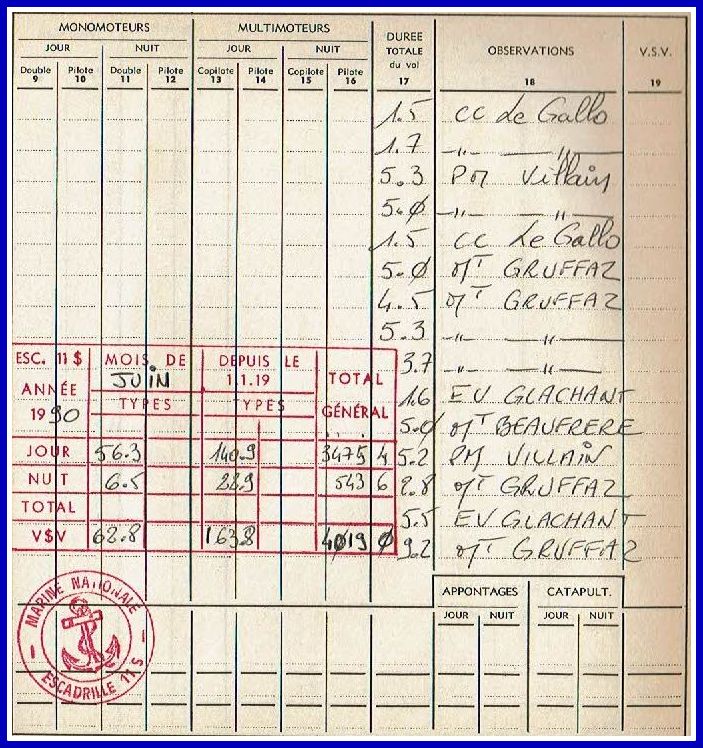 MONOMOTEURS MULTIMOTEURS DUREE TOTALE du vol OBSERVATIONS V.S.V.
JOUR NUIT JOUR NUIT
Double Pilote Double Pilote Copilote Pilote Copilote Pilote
9 10 11 12 13 14 15 16 17 18 19
1.5 CC Le Gallo
1.7 -„- -„-
5.3 PM Villain
5.0 -„- „-
1.5 CC Le Gallo
5.0 MT GRUFFAZ
4.5 MT GRUFFAZ
5.3 -„- „-
3.7 -„- -„-
1.6 EV GLACHANT
5.0 MT BEAUFRERE
5.2 PM VILLAIN
2.8 MT GRUFFAZ
5.5 EV GLACHANT
9.2 MT GRUFFAZ
ESC. 11 S MOIS DE JUIN DEPUIS LE 1.1.19 TOTAL GÉNÉRAL
ANNÉE 1990 TYPES TYPES
JOUR 56.3 140.9 3475 4
NUIT 6.5 22.9 543 6
TOTAL
V$V 62.8 163.8 4019 0
APPONTAGES CATAPULT.
JOUR NUIT JOUR NUIT
MARINE NATIONALE
ESCADRILLE 11 S